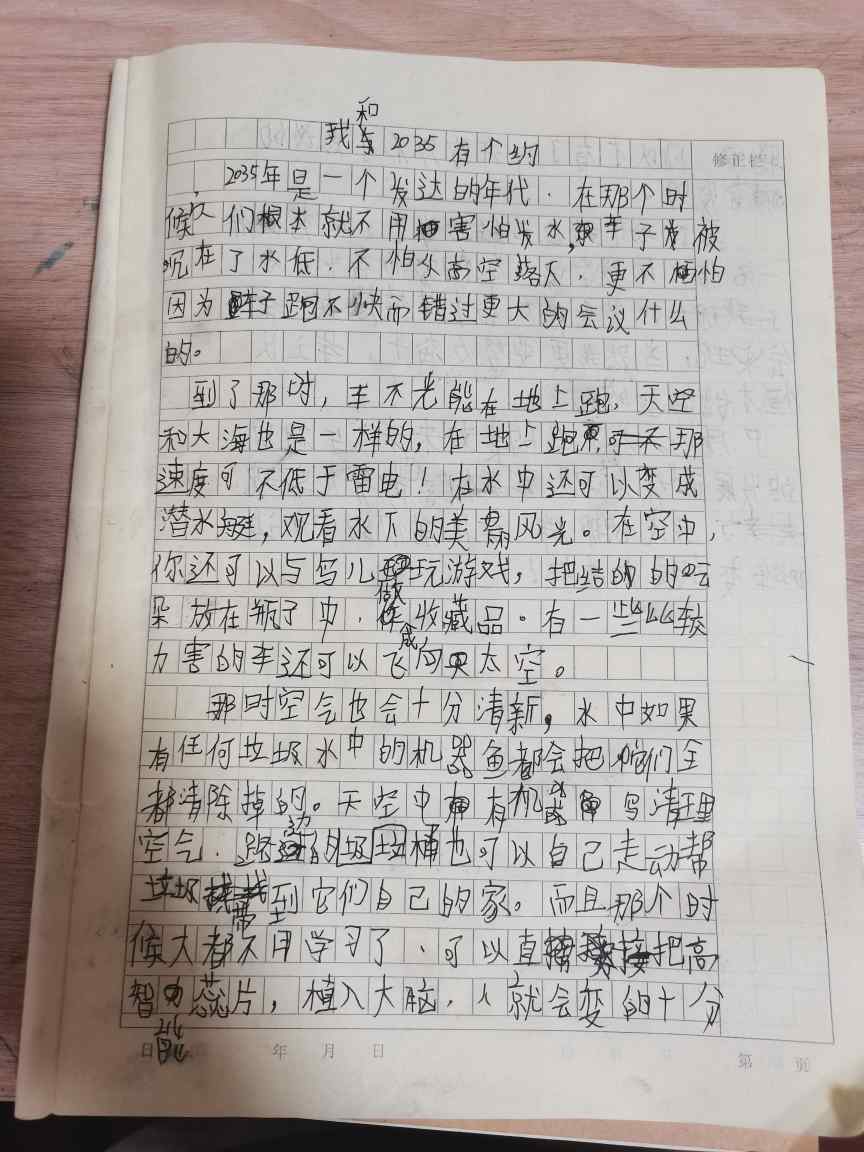 我和2035有个约
修正栏
2035年是一个发达的年代.在那个时
候,人们根本就不用害怕发水,车子被
沉在了水低.不怕从高空落下.更不怕
因为车子跑不快而错过更大的会议什么
的。
到了那时,车不光能在地上跑,天空
和大海也是一样的,在地上跑那
速度可不低于雷电!在水中还可以变成
潜水艇,观看水下的美丽风光。在空中,
你还可以与鸟儿玩游戏,把结的的云
朵放在瓶子中.做成收藏品.有一些比较
力害的车还可以飞向太空。
那时空气也会十分清新,水中如果
有任何垃圾水中的机器鱼都会把它们全
都清除掉的。天空中有机鸟清理
空气.的垃圾桶也可以自己走动帮
垃圾带到它们自己的家。而且那个时
候大都不用学习了、可以直接把高
智能蕊片,植入大脑,人就会变的十分
日 年 月 日
第 页